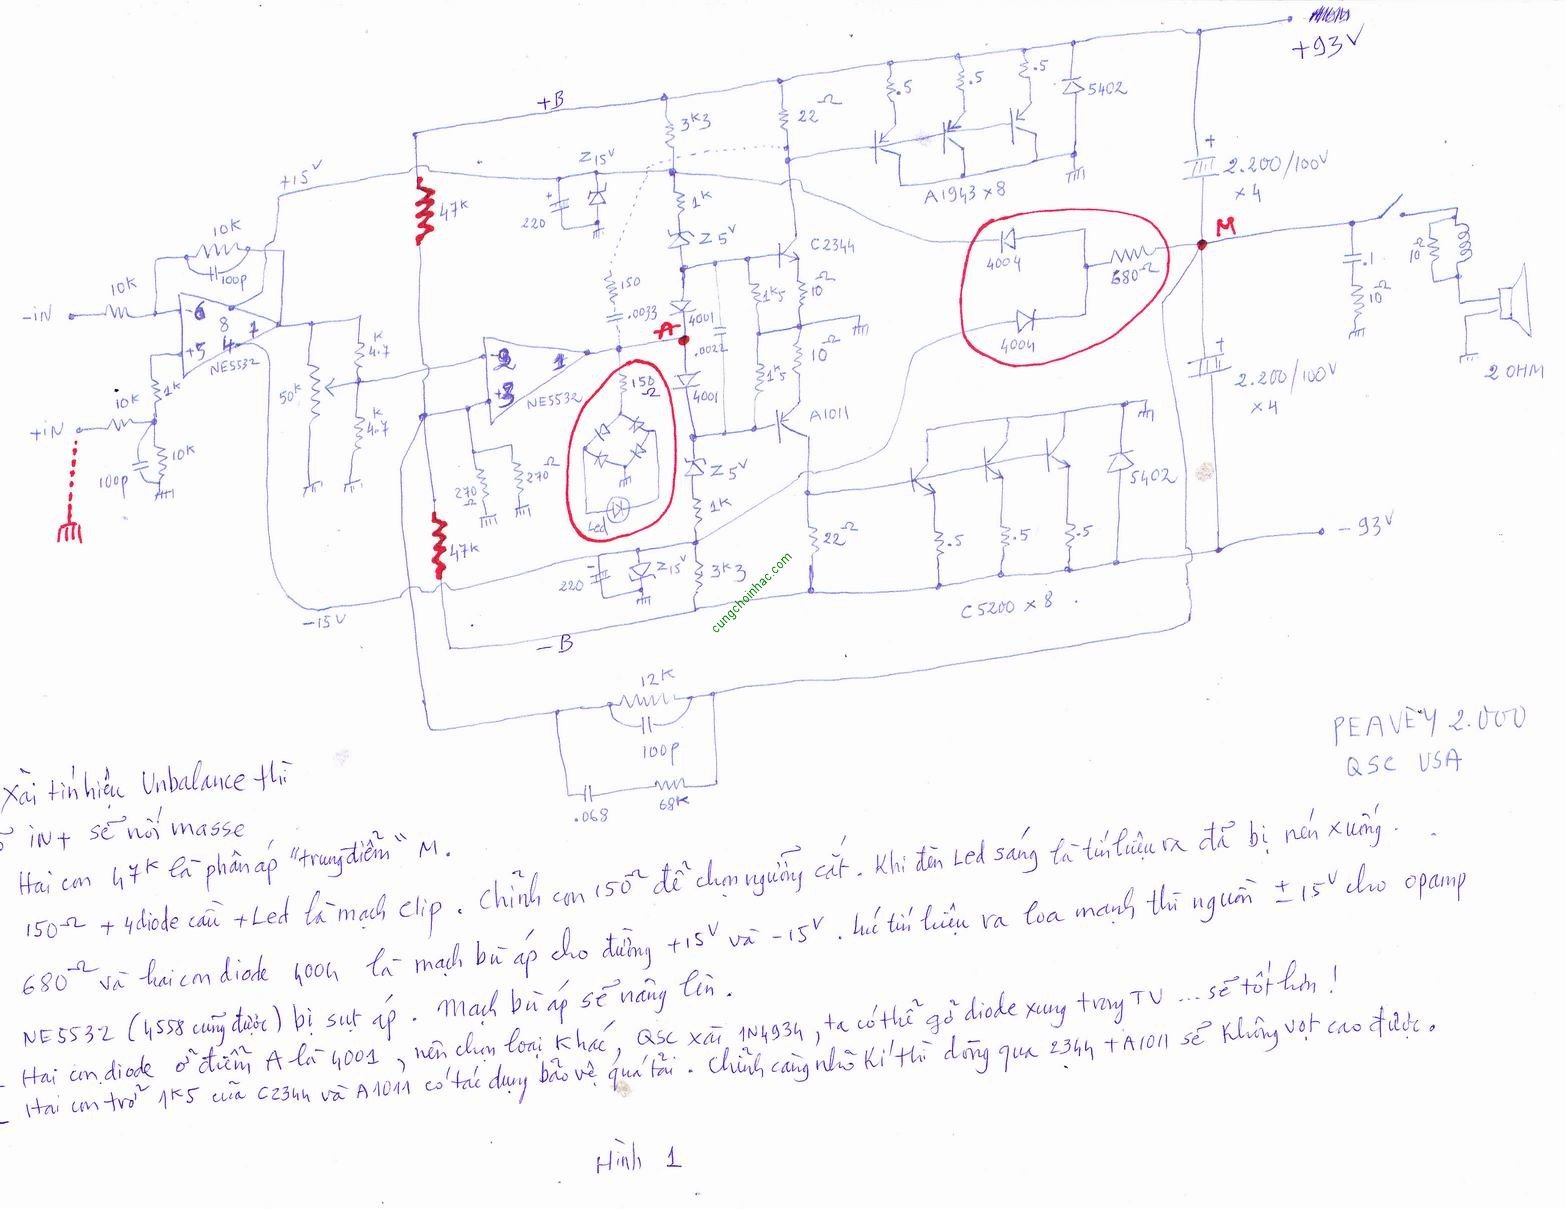 +93V
+B
.5
.5
.5
5402
22Ω
3K3
+15V
Z15V
47K
220
1K
Z5V
A1943 x 8
+
2.200/100V
x 4
10K
100p
C2344
M
4004
680Ω
10Ω
.1
10Ω
10K
-iN
-6
8
1
+5
4
NE5532
150
.0033
A
4001
1K5
10Ω
K
4.7
-2
1
+3
NE5532
150Ω
.0022
4004
2 OHM
+
2.200/100V
x 4
50K
1K
10K
+iN
10K
100p
K
4.7
4001
1K5
A1011
270Ω
270Ω
Led
Z5V
1K
5402
-93V
47K
220
Z15V
3K3
22Ω
.5
.5
.5
C5200 x 8
cungchoinhac.com
-15V
-B
12K
100p
.068
68K
PEAVEY 2.000
QSC USA
Xài tín hiệu Unbalance thì
iN+ sẽ nối masse
Hai con 47K là phân áp "trung điểm" M.
150Ω + 4 diode cầu + Led là mạch clip. Chỉnh con 150Ω để chọn ngưỡng cắt. Khi đèn Led sáng là tín hiệu ra đã bị nén xuống.
680Ω và hai con diode 4004 là mạch bù áp cho đường +15V và -15V. Lúc tín hiệu ra loa mạnh thì nguồn ±15V cho opamp
NE5532 (4558 cũng được) bị sụt áp. Mạch bù áp sẽ nâng lên.
Hai con diode ở điểm A là 4001, nên chọn loại khác, QSC xài 1N4934, ta có thể gỡ diode xung trong TV ... sẽ tốt hơn!
Hai con trở 1K5 của C2344 và A1011 có tác dụng bảo vệ quá tải. Chỉnh càng nhỏ thì dòng qua 2344 + A1011 sẽ không vọt cao được.
Hình 1